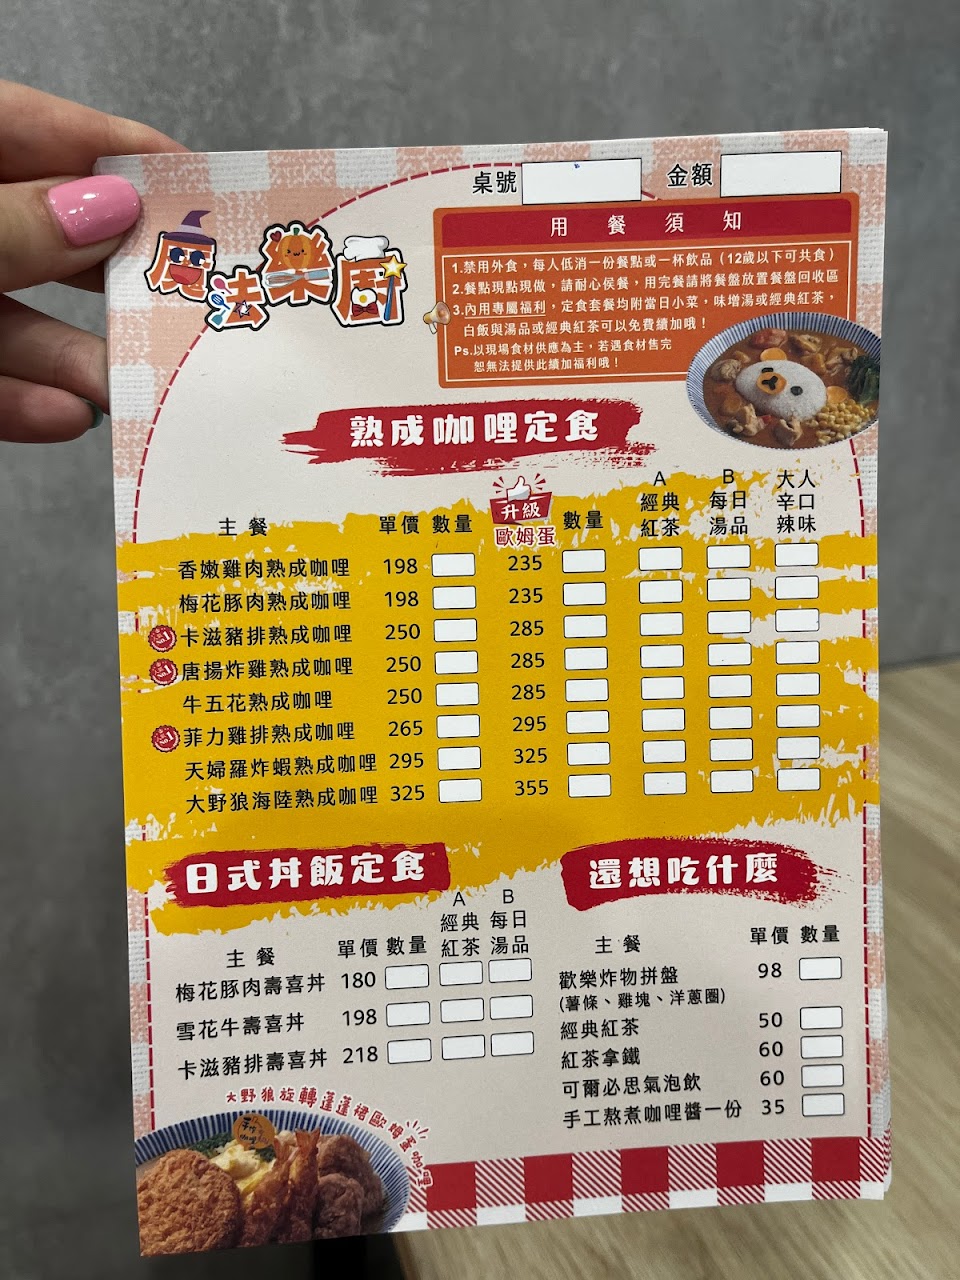 桌號 金額
魔法樂廚
用餐須知
1.禁用外食，每人低消一份餐點或一杯飲品（12歲以下可共食）
2.餐點現點現做，請耐心侯餐，用完餐請將餐盤放置餐盤回收區
3.內用專屬福利，定食套餐均附當日小菜，味增湯或經典紅茶，
白飯與湯品或經典紅茶可以免費續加哦！
Ps.以現場食材供應為主，若遇食材售完
恕無法提供此續加福利哦！
熟成咖哩定食
主餐 單價 數量 升級歐姆蛋 數量 A經典紅茶 B每日湯品 大人辛口辣味
香嫩雞肉熟成咖哩 198 235
梅花豚肉熟成咖哩 198 235
No.1 卡滋豬排熟成咖哩 250 285
No.1 唐揚炸雞熟成咖哩 250 285
牛五花熟成咖哩 250 285
No.1 菲力雞排熟成咖哩 265 295
天婦羅炸蝦熟成咖哩 295 325
大野狼海陸熟成咖哩 325 355
日式丼飯定食
主餐 單價 數量 A經典紅茶 B每日湯品
梅花豚肉壽喜丼 180
雪花牛壽喜丼 198
卡滋豬排壽喜丼 218
大野狼旋轉蓬蓬裙歐姆蛋咖哩
還想吃什麼
主餐 單價 數量
歡樂炸物拼盤 98
(薯條、雞塊、洋蔥圈)
經典紅茶 50
紅茶拿鐵 60
可爾必思氣泡飲 60
手工熬煮咖哩醬一份 35